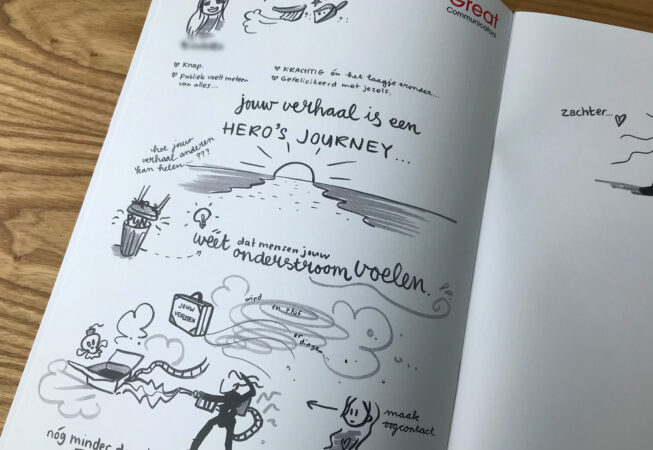 Great
Communicators
♡ Knap.
♡ Publiek voelt meteen
van alles...
♡ KRACHTIG én het laagje eronder...
♡ Gefeliciteerd met jezelf.
jouw verhaal is een
HERO'S JOURNEY...
hoe jouw
verhaal anderen
kan helen...???
PIJN
wéét dat mensen jouw
onderstroom voelen.
JOUW
VERLEDEN
wind
en
er
dingen...
maak
oogcontact
nóg minder
zachter...